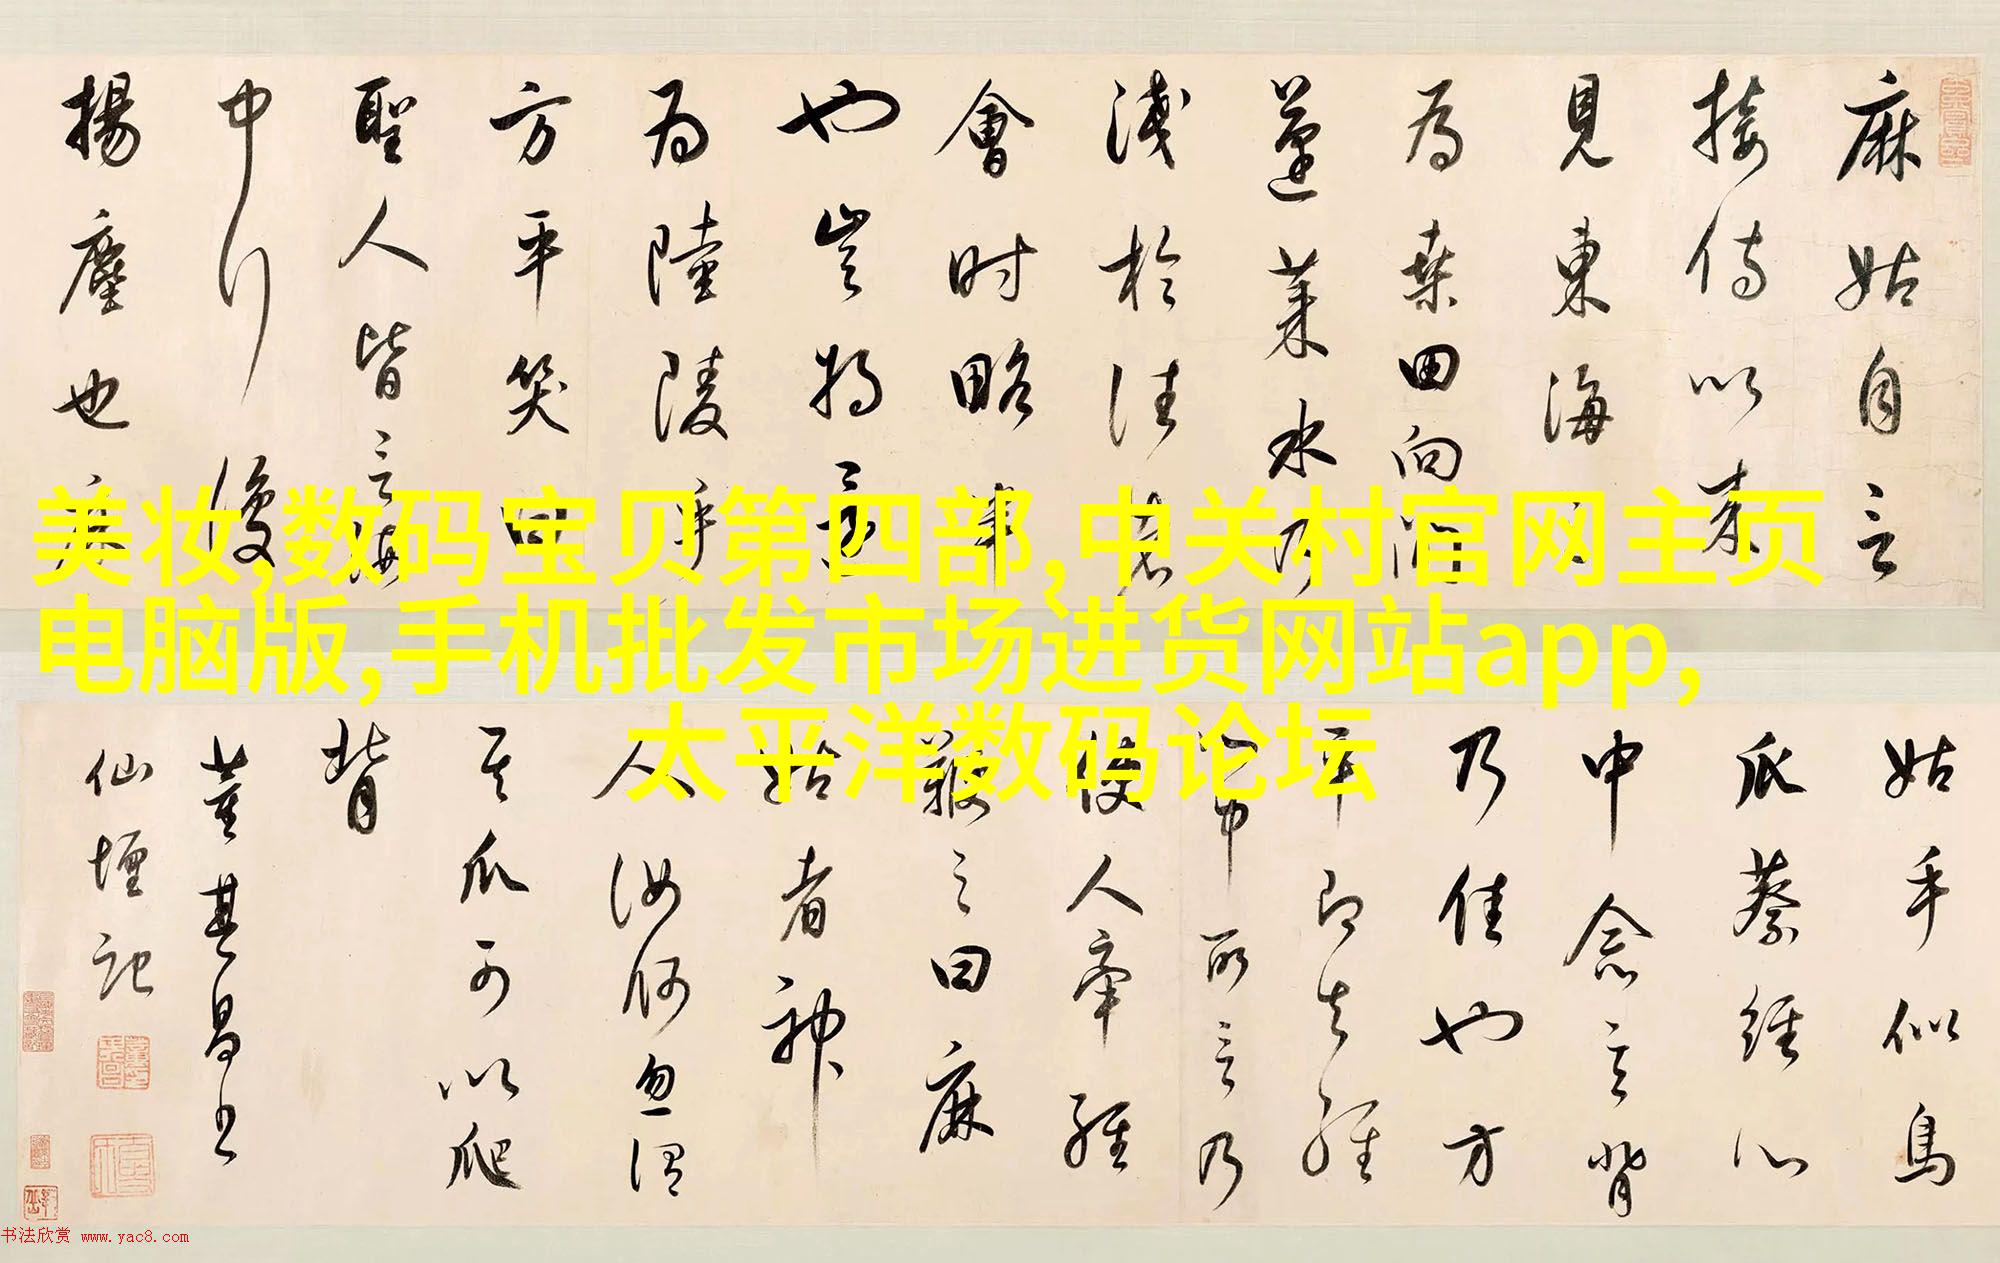 麻姑自言
接侍以来
見東海三
為桑田向間
蓬莱水乃
淺於往者
會时略半
也豈将還
为陸陵乎
方平笑曰
聖人皆言海
中行復
揚塵也麻
美妆,数码宝贝第四部,中关村官网主页
电脑版,手机批发市场进货网站app,
太平洋数码论坛
姑手似鳥
爪蔡經心
中念言背
乃佳也方
平即知經
心中所言乃
使人牽經
鞭之曰麻
姑者神
人汝何忽謂
其爪可以爬
背
董其昌书
仙壇記
书法欣赏 www.yac8.com